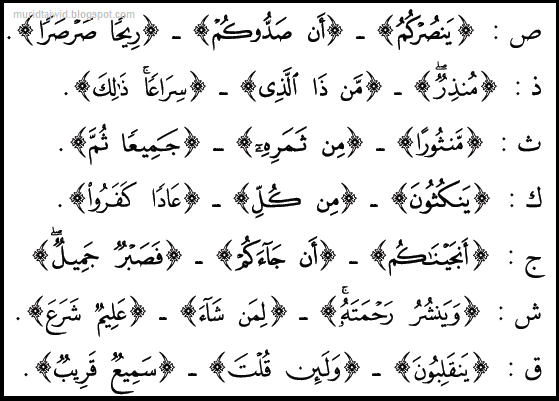 muridtajwid.blogspot.com
ص : ﴿يَنصُرْكُمُ﴾ ـ ﴿أَن صَدُّوكُمْ﴾ ـ ﴿رِيحًا صَرْصَرًا﴾ .
ذ : ﴿مُنذِرٌۖ﴾ ـ ﴿مَّن ذَا الَّذِى﴾ ـ ﴿سِرَاعًاۚ ذَٰلِكَ﴾ .
ث : ﴿مَّنثُورًا﴾ ـ ﴿مِن ثَمَرِهِۦ﴾ ـ ﴿جَمِيعًا ثُمَّ﴾ .
ك : ﴿يَنكُثُونَ﴾ ـ ﴿مِن كُلِّ﴾ ـ ﴿عَادًا كَفَرُوا۟﴾ .
ج : ﴿أَنجَيْنَـٰكُم﴾ ـ ﴿أَن جَآءَكُمْ﴾ ـ ﴿فَصَبْرٌ جَمِيلٌۖ﴾
ش : ﴿وَيَنشُرُ رَحْمَتَهُۥۚ﴾ ـ ﴿لِمَن شَآءَ﴾ ـ ﴿عَلِيمٌ شَرَعَ﴾ .
ق : ﴿يَنقَلِبُونَ﴾ ـ ﴿وَلَئِن قُلْتَ﴾ ـ ﴿سَمِيعٌ قَرِيبٌ﴾ .